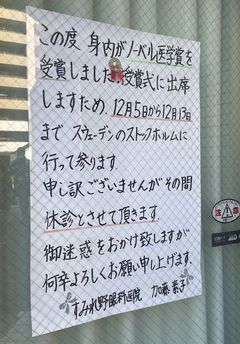 この度 身内がノーベル医学賞を
受賞しました。授賞式に出席
しますため、12月5日から12月13日
まで スウェーデンのストックホルムに
行って参ります
申し訳ございませんがその間
休診とさせて頂きます
御迷惑をおかけ致しますが
何卒よろしくお願い申し上げます
すみれ野眼科医院 加藤 素子
注意